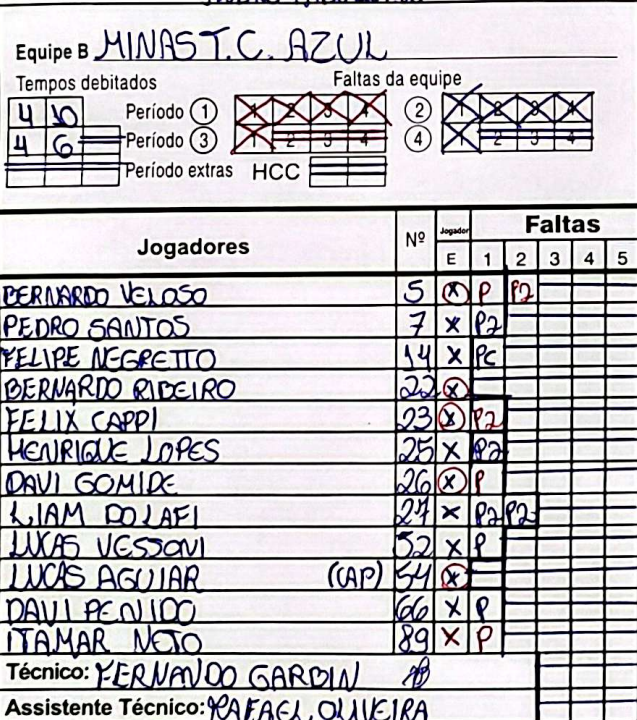 Equipe B MINAS T.C. AZUL
Tempos debitados Faltas da equipe
4 10 Período 1 1 2 3 4 2 1 2 3 4
4 6 Período 3 1 2 3 4 4 1 2 3 4
Período extras HCC
Jogadores Nº Jogador Faltas
E 1 2 3 4 5
BERNARDO VELOSO 5 X P P2
PEDRO SANTOS 7 X P2
FELIPE NEGRETTO 14 X PC
BERNARDO RIBEIRO 22 X
FELIX CAPPI 23 X P2
HENRIQUE LOPES 25 X P2
DAVI GOMIDE 26 X P
LIAM DOLAFI 27 X P2 P2
LUCAS VESSONI 52 X P
LUCAS AGUIAR (CAP) 54 X
DAVI PENIDO 66 X P
ITAMAR NETO 89 X P
Técnico: FERNANDO GARBIN
Assistente Técnico: RAFAEL OLIVEIRA